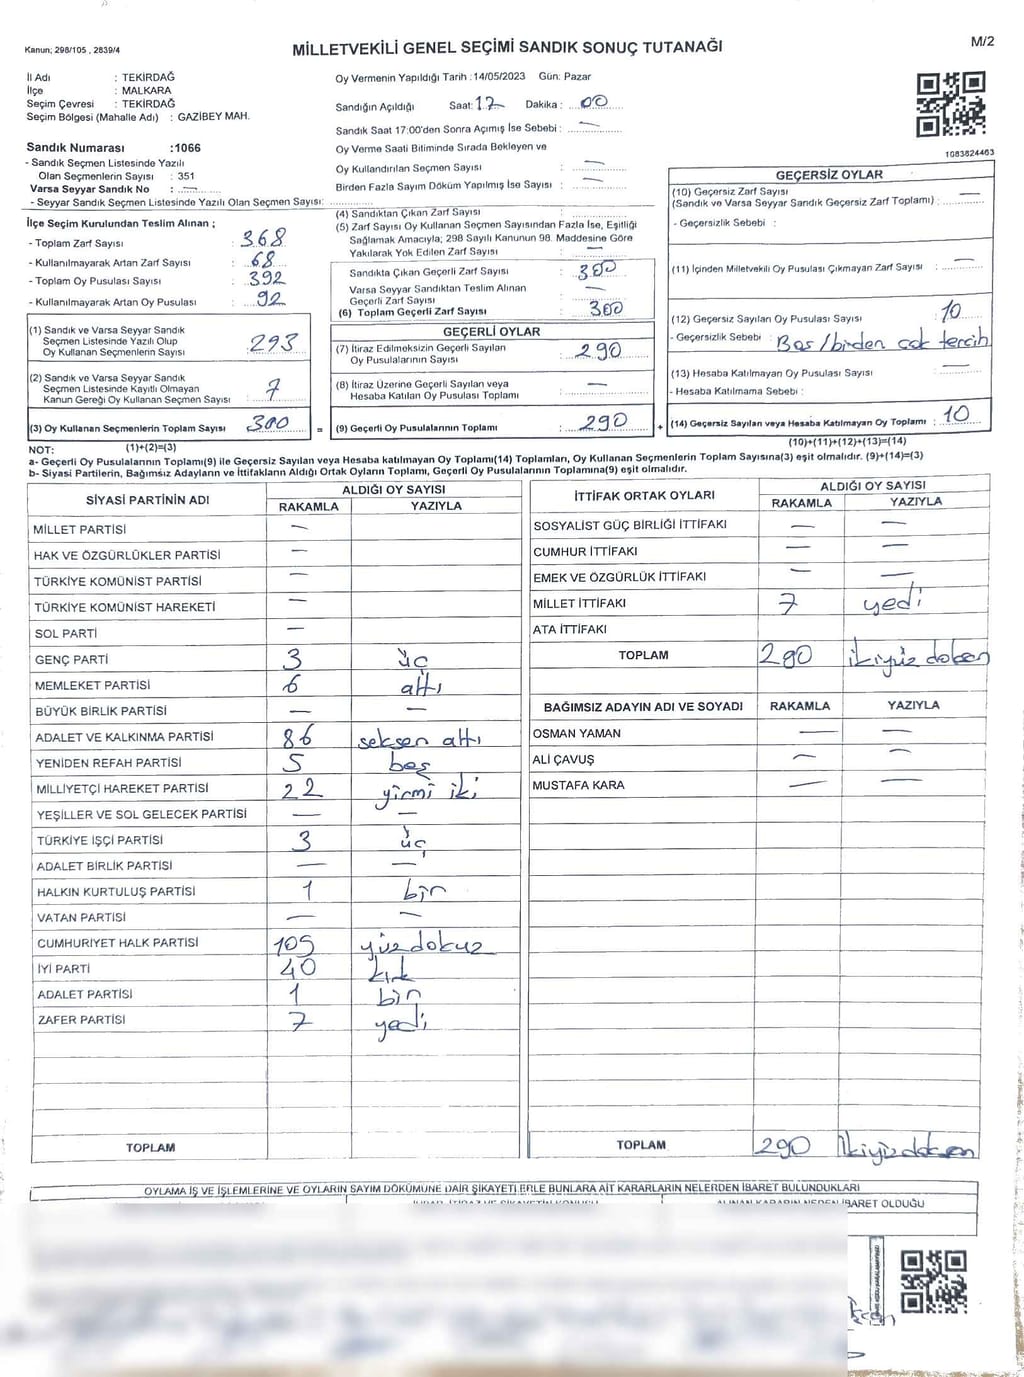 Kanun; 298/105 , 2839/4
MİLLETVEKİLİ GENEL SEÇİMİ SANDIK SONUÇ TUTANAĞI
M/2
İl Adı : TEKİRDAĞ
İlçe : MALKARA
Seçim Çevresi : TEKİRDAĞ
Seçim Bölgesi (Mahalle Adı) : GAZİBEY MAH.
Oy Vermenin Yapıldığı Tarih :14/05/2023 Gün: Pazar
Sandığın Açıldığı Saat: 17 Dakika : 00
Sandık Saat 17:00'den Sonra Açımış İse Sebebi : —
Oy Verme Saati Bitiminde Sırada Bekleyen ve
Oy Kullandırılan Seçmen Sayısı : —
Birden Fazla Sayım Döküm Yapılmış İse Sayısı : —
1083824463
Sandık Numarası :1066
- Sandık Seçmen Listesinde Yazılı
Olan Seçmenlerin Sayısı : 351
Varsa Seyyar Sandık No : —
- Seyyar Sandık Seçmen Listesinde Yazılı Olan Seçmen Sayısı:
İlçe Seçim Kurulundan Teslim Alınan ;
- Toplam Zarf Sayısı : 368
- Kullanılmayarak Artan Zarf Sayısı : 68
- Toplam Oy Pusulası Sayısı : 392
- Kullanılmayarak Artan Oy Pusulası : 92
(1) Sandık ve Varsa Seyyar Sandık
Seçmen Listesinde Yazılı Olup
Oy Kullanan Seçmenlerin Sayısı : 293
(2) Sandık ve Varsa Seyyar Sandık
Seçmen Listesinde Kayıtlı Olmayan
Kanun Gereği Oy Kullanan Seçmen Sayısı : 7
(3) Oy Kullanan Seçmenlerin Toplam Sayısı : 300 =
(4) Sandıktan Çıkan Zarf Sayısı :
(5) Zarf Sayısı Oy Kullanan Seçmen Sayısından Fazla İse, Eşitliği
Sağlamak Amacıyla; 298 Sayılı Kanunun 98. Maddesine Göre
Yakılarak Yok Edilen Zarf Sayısı : —
Sandıkta Çıkan Geçerli Zarf Sayısı : 300
Varsa Seyyar Sandıktan Teslim Alınan
Geçerli Zarf Sayısı : —
(6) Toplam Geçerli Zarf Sayısı : 300
GEÇERLİ OYLAR
(7) İtiraz Edilmeksizin Geçerli Sayılan
Oy Pusulalarının Sayısı : 290
(8) İtiraz Üzerine Geçerli Sayılan veya
Hesaba Katılan Oy Pusulası Toplamı : —
(9) Geçerli Oy Pusulalarının Toplamı : 290 +
GEÇERSİZ OYLAR
(10) Geçersiz Zarf Sayısı
(Sandık ve Varsa Seyyar Sandık Geçersiz Zarf Toplamı) : —
- Geçersizlik Sebebi :
(11) İçinden Milletvekili Oy Pusulası Çıkmayan Zarf Sayısı : —
(12) Geçersiz Sayılan Oy Pusulası Sayısı : 10
- Geçersizlik Sebebi : Boş/birden çok tercih
(13) Hesaba Katılmayan Oy Pusulası Sayısı : —
- Hesaba Katılmama Sebebi :
(14) Geçersiz Sayılan veya Hesaba Katılmayan Oy Toplamı : 10
NOT: (1)+(2)=(3)
(10)+(11)+(12)+(13)=(14)
a- Geçerli Oy Pusulalarının Toplamı(9) ile Geçersiz Sayılan veya Hesaba katılmayan Oy Toplamı(14) Toplamları, Oy Kullanan Seçmenlerin Toplam Sayısına(3) eşit olmalıdır. (9)+(14)=(3)
b- Siyasi Partilerin, Bağımsız Adayların ve İttifakların Aldığı Ortak Oyların Toplamı, Geçerli Oy Pusulalarının Toplamına(9) eşit olmalıdır.
SİYASİ PARTİNİN ADI ALDIĞI OY SAYISI
RAKAMLA YAZIYLA
MİLLET PARTİSİ —
HAK VE ÖZGÜRLÜKLER PARTİSİ —
TÜRKİYE KOMÜNİST PARTİSİ —
TÜRKİYE KOMÜNİST HAREKETİ —
SOL PARTİ —
GENÇ PARTİ 3 üç
MEMLEKET PARTİSİ 6 altı
BÜYÜK BİRLİK PARTİSİ — —
ADALET VE KALKINMA PARTİSİ 86 seksen altı
YENİDEN REFAH PARTİSİ 5 beş
MİLLİYETÇİ HAREKET PARTİSİ 22 yirmi iki
YEŞİLLER VE SOL GELECEK PARTİSİ — —
TÜRKİYE İŞÇİ PARTİSİ 3 üç
ADALET BİRLİK PARTİSİ — —
HALKIN KURTULUŞ PARTİSİ 1 bir
VATAN PARTİSİ — —
CUMHURİYET HALK PARTİSİ 109 yüzdokuz
İYİ PARTİ 40 kırk
ADALET PARTİSİ 1 bir
ZAFER PARTİSİ 7 yedi
TOPLAM
İTTİFAK ORTAK OYLARI ALDIĞI OY SAYISI
RAKAMLA YAZIYLA
SOSYALİST GÜÇ BİRLİĞİ İTTİFAKI — —
CUMHUR İTTİFAKI — —
EMEK VE ÖZGÜRLÜK İTTİFAKI — —
MİLLET İTTİFAKI 7 yedi
ATA İTTİFAKI
TOPLAM 290 ikiyüz doksan
BAĞIMSIZ ADAYIN ADI VE SOYADI RAKAMLA YAZIYLA
OSMAN YAMAN — —
ALİ ÇAVUŞ — —
MUSTAFA KARA — —
TOPLAM 290 ikiyüzdoksan
OYLAMA İŞ VE İŞLEMLERİNE VE OYLARIN SAYIM DÖKÜMÜNE DAİR ŞİKAYETLERLE BUNLARA AİT KARARLARIN NELERDEN İBARET BULUNDUKLARI
ALINAN KARARIN NEDEN İBARET OLDUĞU